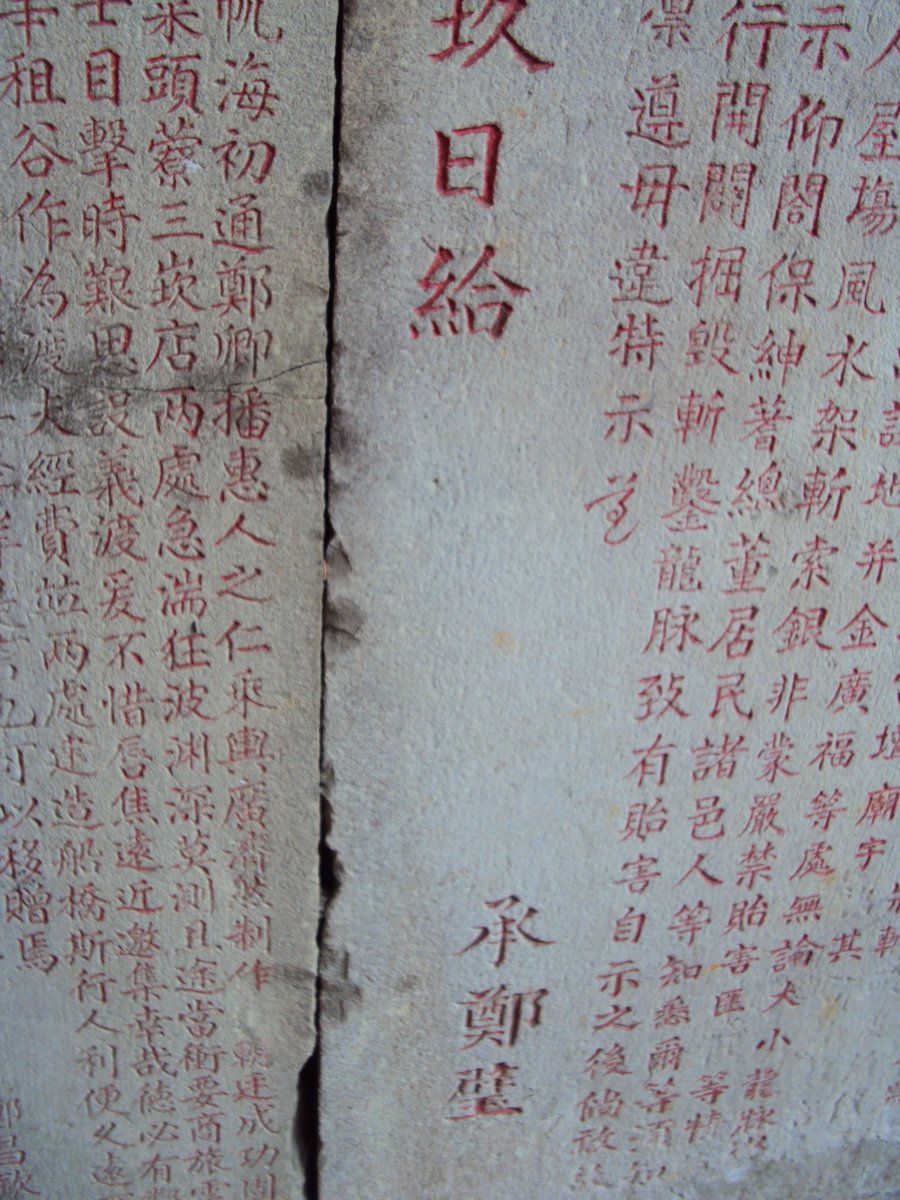 壇廟宇
請地并金廣福等處無論大小龍脉
人屋塲風水架斬索銀非蒙嚴禁貽害匪等特
示仰閤保紳蓍總董居民諸邑人等知悉爾等須知
行開闢掘毀斬鑿龍脉致有貽害自示之後倘敢故
凜遵毋違特示
玖日給
承鄭璧
帆海初通鄭卿播惠人之仁乘輿廣濟然制作輒速成功固
來頭藔三崁店两處急湍狂波渊深莫測且途當衝要商旅
士目擊時艱思設義渡爰不惜唇焦遠近邀集幸哉德必有
租谷作為渡夫經費竝两處建造船橋斯行人利便久遠
也可以移贈焉